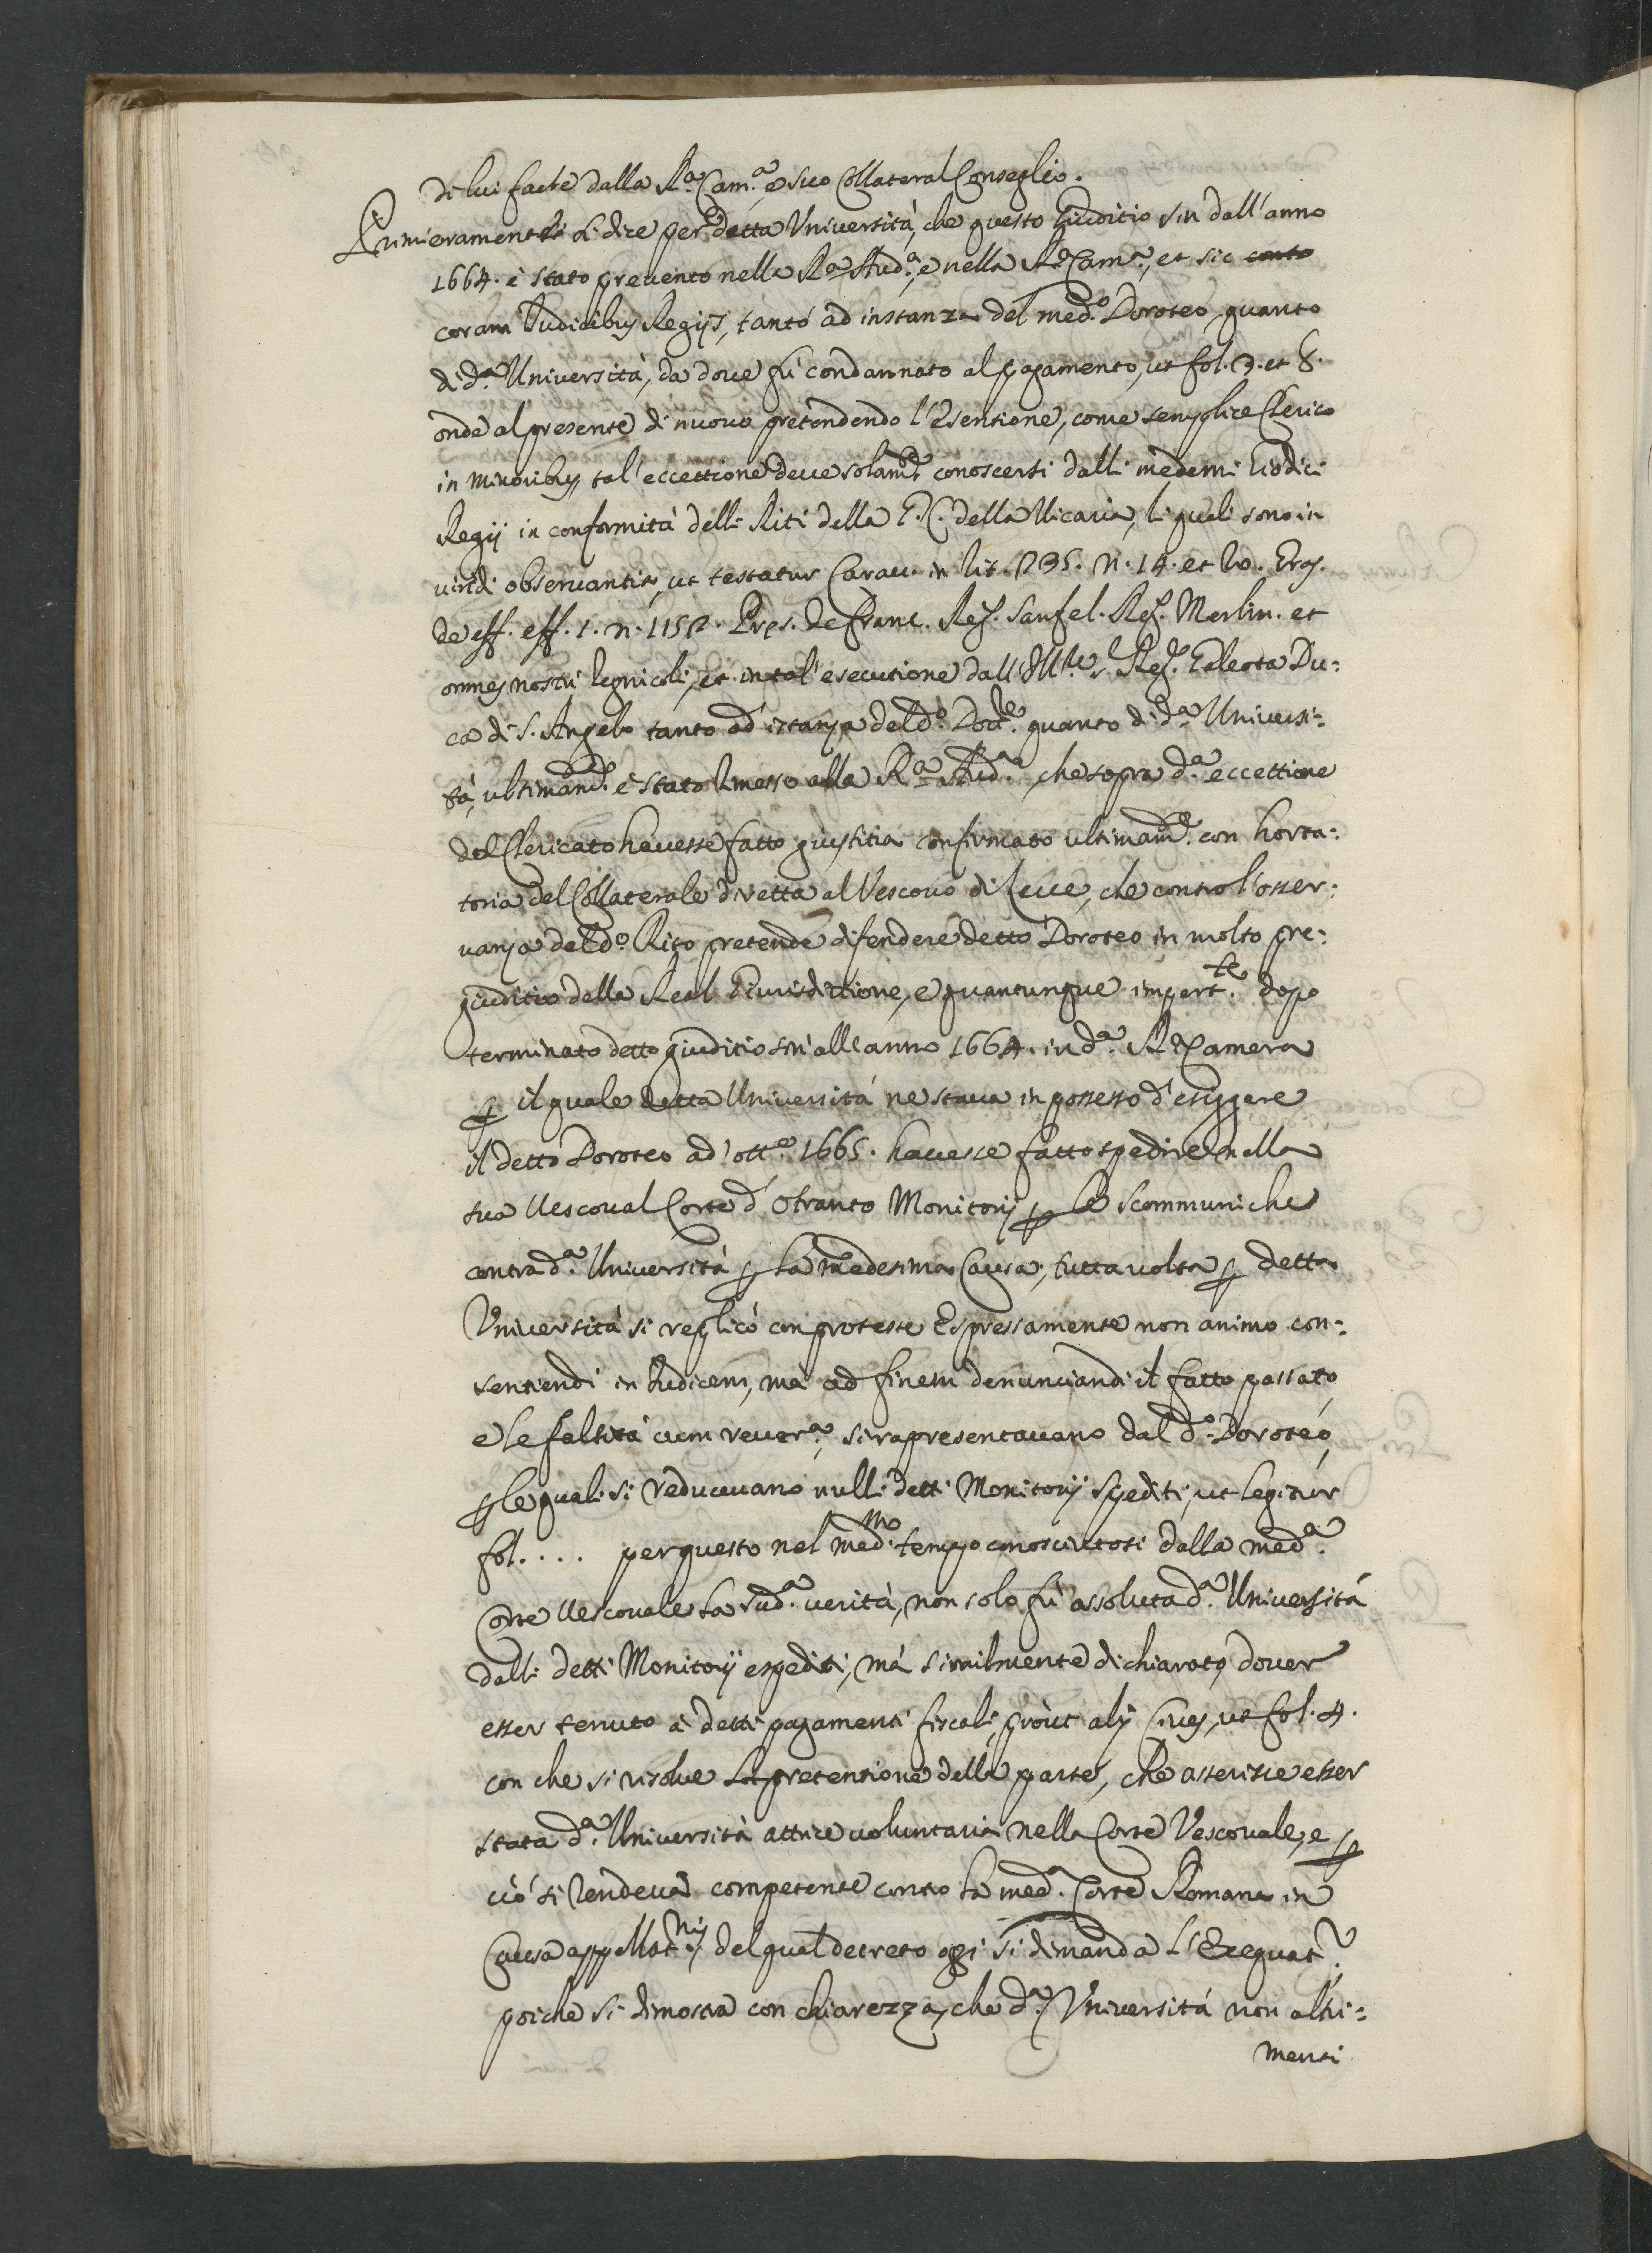 di lui facte dalla R.ª Cam.ª, e suo Collateral Conseglio.
Primieramente si dice per detta Università, che questo Giuditio sin dall'anno
1664. è stato prevento nella R.ª Aud.ª, e nella R.ª Cam.ª, et sic
coram Iudicibus Regijs, tanto ad instanza del med.º Doroteo, quanto
di d.ª Università, da dove fù condannato al pagamento, ut fol. 3. et 8.
onde al presente di nuovo pretendendo l'Esentione, come semplice Clerico
in minoribus, tal'eccettione deve solam.te conoscersi dalli medemi Giodici
Regij in conformità delli Riti della G. C. della Vicaria, li quali sono in
viridi observantia, ut testatur Carav. in rit. 235. n. 14. et
de eff. eff. 1. n. 1152. Pres. de Franc. Reg. Sanfel. Reg. Merlin. et
omnes nostri regnicoli, et in tal'esecutione dall'Ill.e s. Reg. Galeota Du:
ca di S. Angelo tanto ad istanza del d.º Doct.e quanto di d.ª Universi:
tà, ultimam.te è stato rimesso alla R.ª Aud.ª, che sopra d.ª eccettione
del Clericato havesse fatto giustitia confirmato ultimam.te con horta:
toria del Collaterale diretta al Vescovo di Lecce, che contro l'osser:
vanza del d.º Rito pretende difendere detto Doroteo in molto pre:
giuditio della Real Giurisdittione, e quantunque impert.te dopo
terminato detto giuditio sin'all'anno 1664. in d.ª R.ª Camera
p il quale detta Università ne stava in possesso d'esiggere
il detto Doroteo ad' ott.e 1665. havesse fatto spedire nella
sua Vescoval Corte d'Otranto Monitorij p le scommuniche
contra d.ª Università p la medesima Causa, tutta volta p detta
Università si replicò con proteste Espressamente non animo con:
sentiendi in Iudicem, mà ad finem denunciandi il fatto passato,
e le falsità cum rever.ª, si rapresentavano dal d.º Doroteo,
p le quali si reducevano nulli detti Monitorij spediti, ut legitur
fol. .... per questo nel med.mo tempo conosciutosi dalla med.ª
Corte Vescovale la sud.ª verità, non solo fù assoluta d.ª Università
dalli detti Monitorij espediti, mà similmente dichiarato, dover
esser tenuto à detti pagamenti fiscali, prout alij Cives, ut fol. 4.
con che si risolve la pretentione della parte, che asserisce esser
stata d.ª Università attrice voluntaria nella Corte Vescovale, e p
ciò si rendeva competente contro la med.ª Corte Romana in
Causa appellat.nis, del qual decreto oggi si dimanda l'Exequat.r
poiche si dimostra con chiarezza, che d.ª Università non altri:
menti